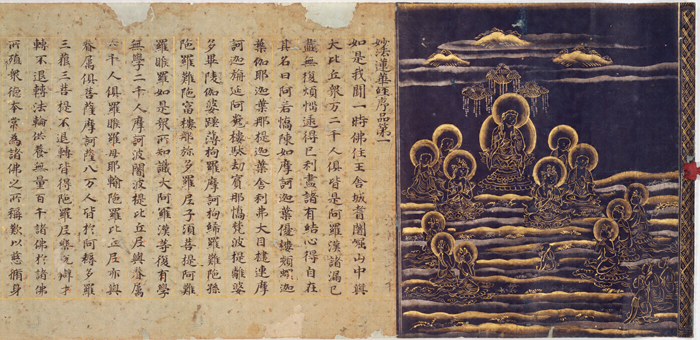 妙法蓮華經序品第一
如是我聞一時佛住王舍城耆闍崛山中與
大比丘眾万二千人俱皆是阿羅漢諸漏已
盡無復煩惱逮得己利盡諸有結心得自在
其名曰阿若憍陳如摩訶迦葉優樓頻螺迦
葉伽耶迦葉那提迦葉舍利弗大目揵連摩
訶迦栴延阿㝹樓馱劫賓那憍梵波提離婆
多畢陵伽婆蹉薄拘羅摩訶拘絺羅難陀孫
陀羅難陀富樓那彌多羅尼子須菩提阿難
羅睺羅如是眾所知識大阿羅漢等復有學
無學二千人摩訶波闍波提比丘尼與眷屬
六千人俱羅睺羅母耶輸陀羅比丘尼亦與
眷屬俱菩薩摩訶薩八万人皆於阿耨多羅
三藐三菩提不退轉皆得陀羅尼樂說辯才
轉不退轉法輪供養無量百千諸佛於諸佛
所殖眾德本常為諸佛之所稱歎以慈脩身